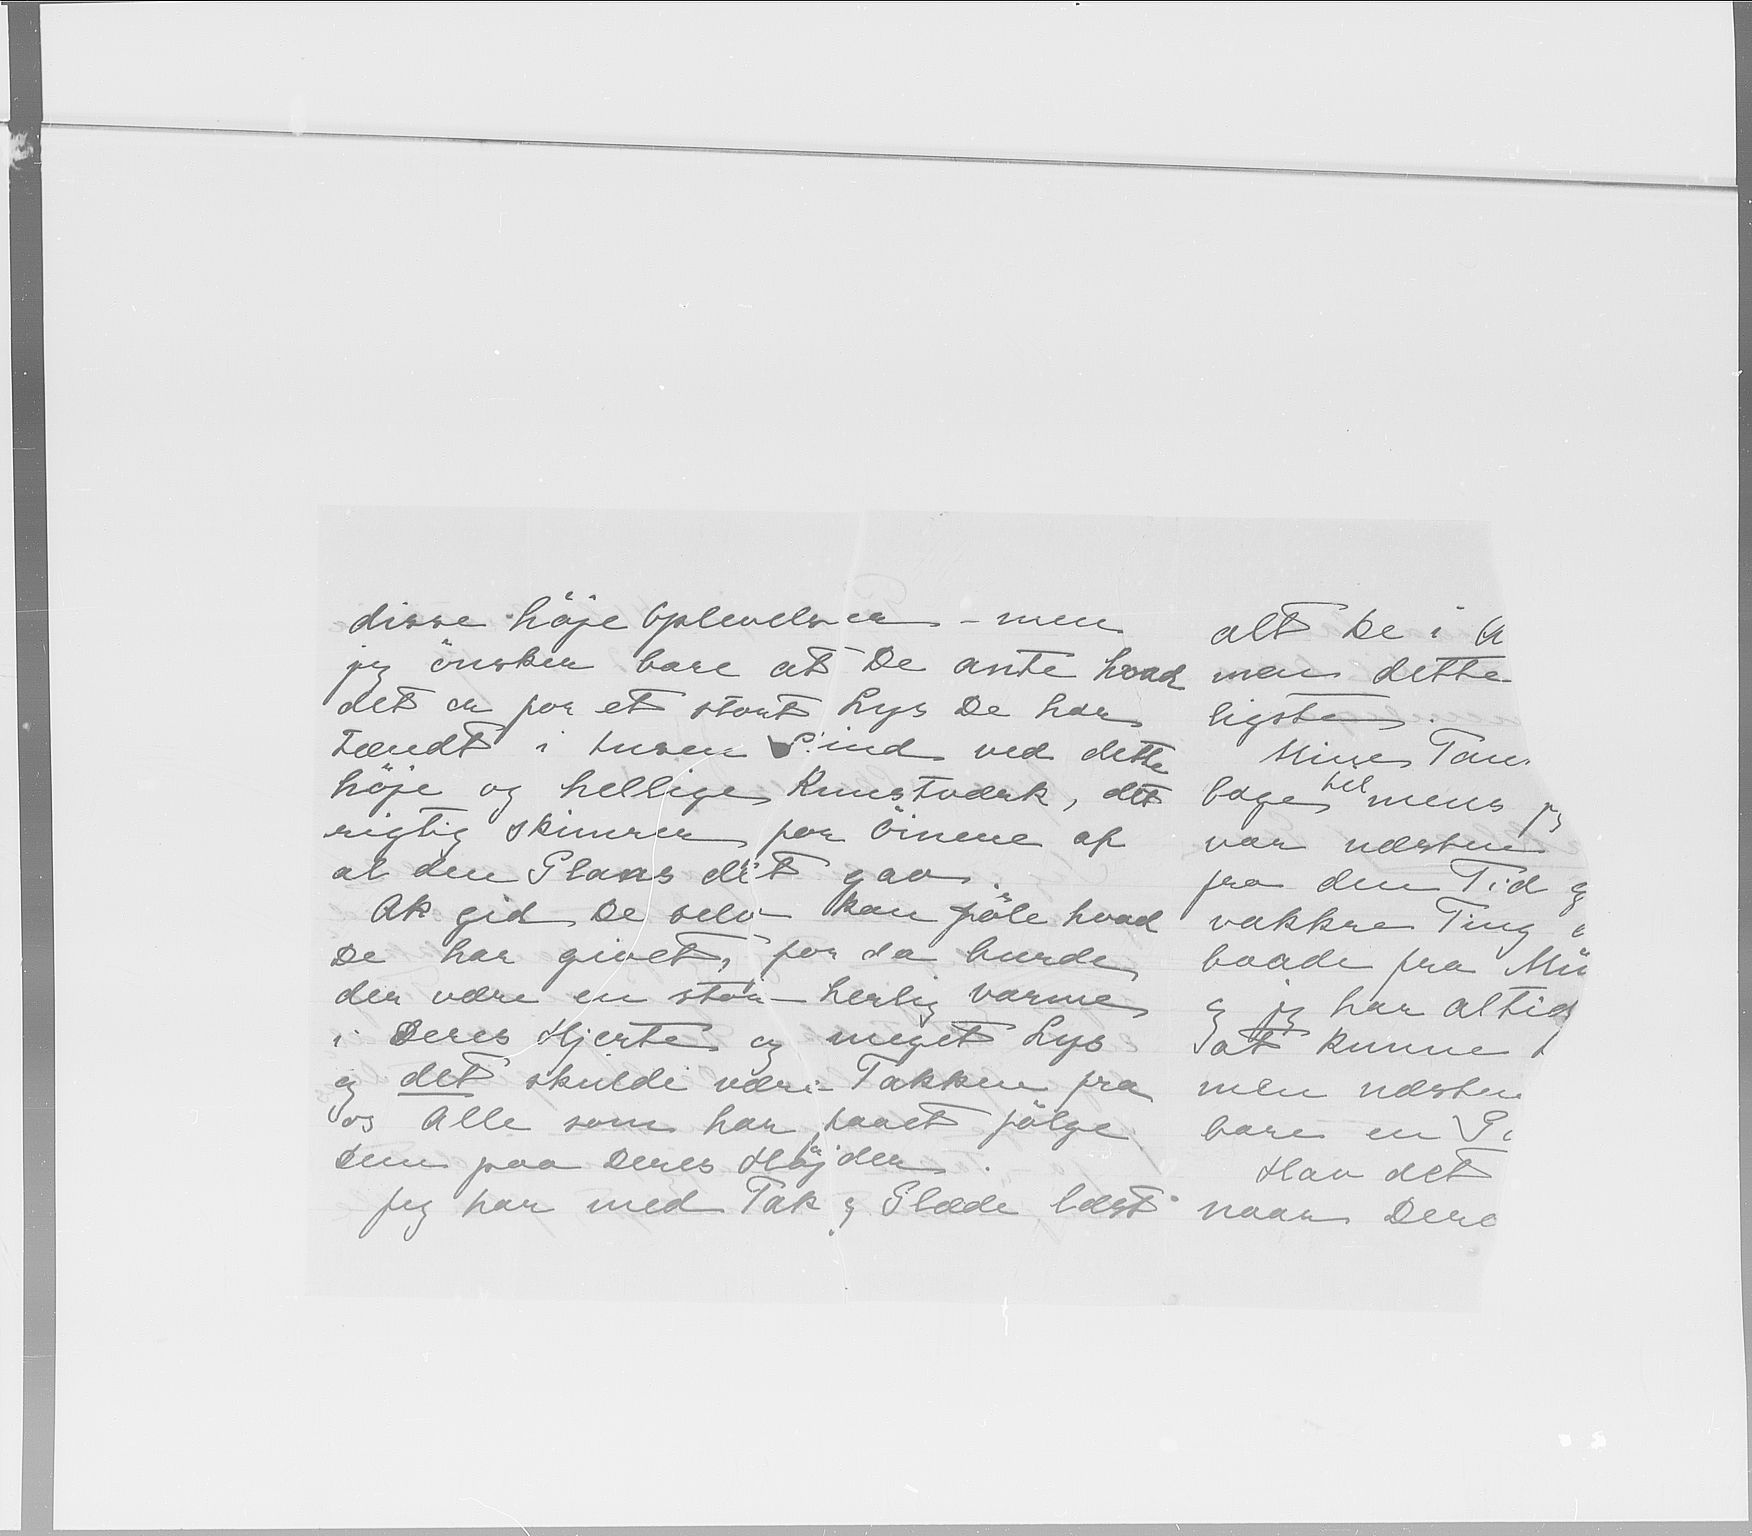 disse höje Oplevelser – men
jeg önsker bare at De ante hvad
det er for et stort Lys De har
tændt i tusen Sind ved dette
höje og hellige Kunstværk, det
rigtig skinner for Öinene af
al den Glans det gav.
Ak gid De selv kan föle hvad
De har givet, for da burde
der være en stor – herlig Varme
i Deres Hjerte og meget Lys
og det skulde være Takken fra
os Alle som har faaet fölge
Dem paa Deres Höjder.
Jeg har med Tak & Glæde læst
alt De i
men dette
ligste.
Mine Tan
bage til mens jeg
var næsten
fra den Tid og
vakkre Ting
baade fra Mü
og jeg har altid
at kunne
men næsten
bare en
Hav det
naar Dere